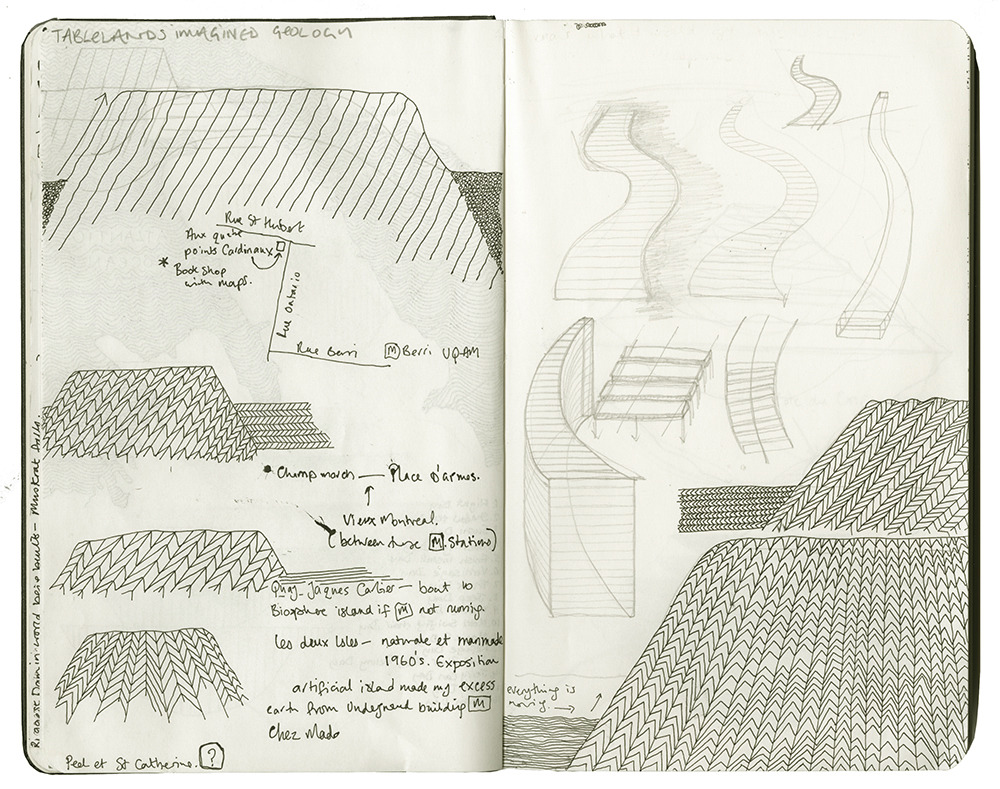 TABLELANDS IMAGINED GEOLOGY
Rue St Hubert
Aux quatre
points Cardinaux
* Book Shop
with maps.
Rue Ontario
Rue Berri
M Berri UQAM
Place d'armes.
Vieux Montreal.
(between these M. Stations)
Jaques Cartier — boat to
Biosphere island if M not running.
Les deux Isles — naturale et manmade
1960's. Exposition
artificial island made my excess
earth from Underground building M
Chez Mado
Peel et St Catherine. ?
everything is
moving.